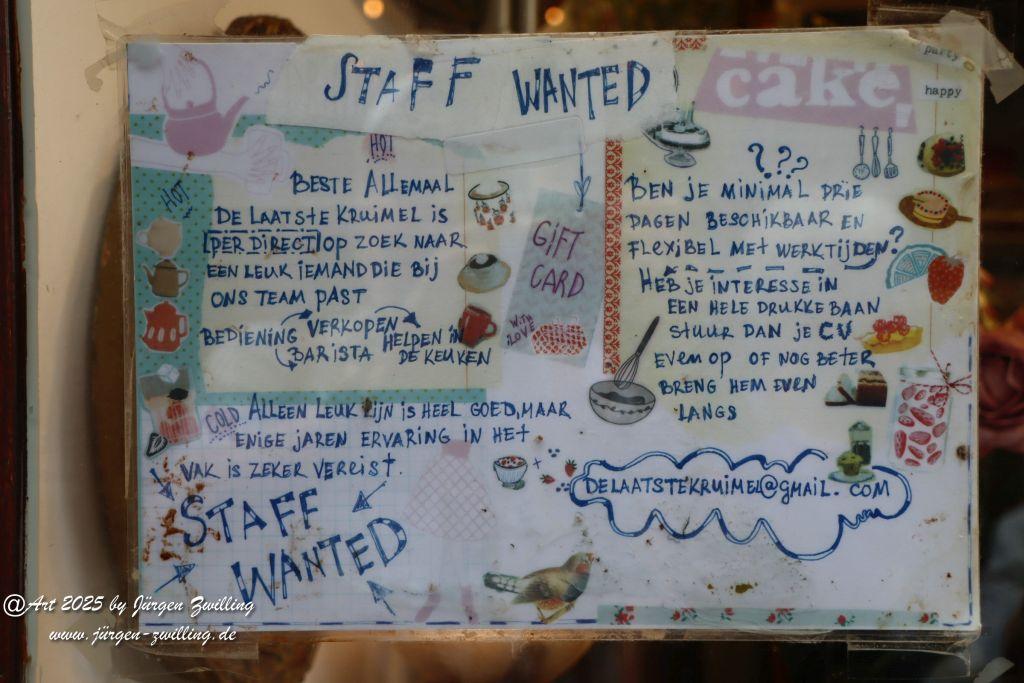 STAFF WANTED
cake
party
happy
HOT
HOT
BESTE ALLEMAAL
DE LAATSTE KRUIMEL IS
PER DIRECT OP ZOEK NAAR
EEN LEUK IEMAND DIE BIJ
ONS TEAM PAST
BEDIENING VERKOPEN HELPEN IN
BARISTA DE KEUKEN
COLD ALLEEN LEUK ZIJN IS HEEL GOED, MAAR
ENIGE JAREN ERVARING IN HET
VAK IS ZEKER VEREIST.
STAFF
WANTED
GIFT
CARD
WITH
LOVE
???
BEN JE MINIMAL DRIE
DAGEN BESCHIKBAAR EN
FLEXIBEL MET WERKTIJDEN?
HEB JE INTERESSE IN
EEN HELE DRUKKE BAAN
STUUR DAN JE CV
EVEN OP OF NOG BETER
BRENG HEM EVEN
LANGS
DELAATSTEKRUIMEL@GMAIL.COM
@Art 2025 by Jürgen Zwilling
www.jürgen-zwilling.de